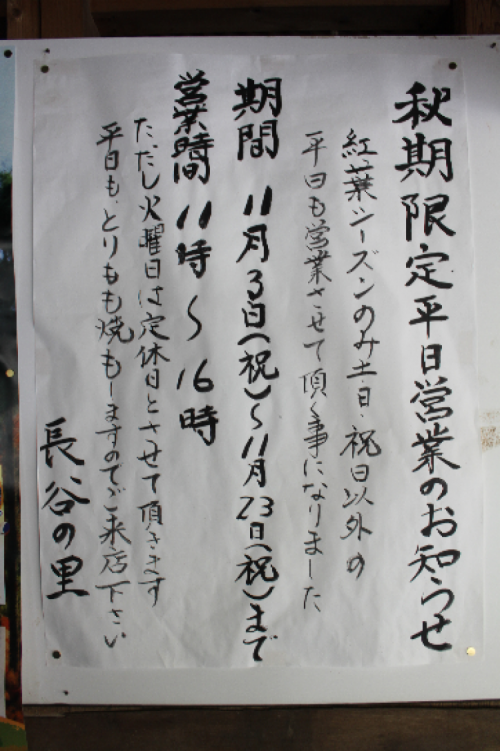 秋期限定平日営業のお知らせ
紅葉シーズンのみ土・日・祝日以外の
平日も営業させて頂く事になりました
期間 11月3日(祝)〜11月23日(祝)まで
営業時間 11時〜16時
ただし火曜日は定休日とさせて頂きます
平日も、とりもも焼もしますのでご来店下さい
長谷の里